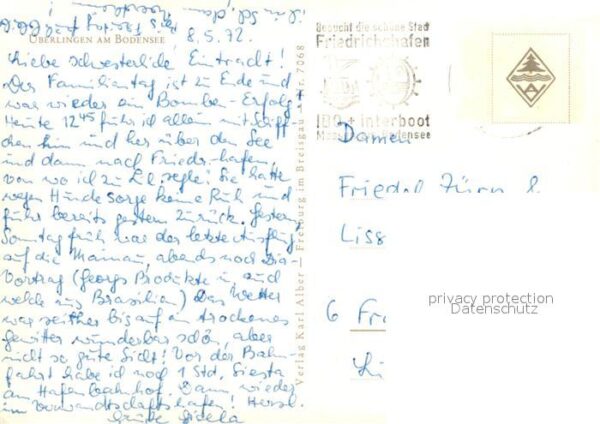 ÜBERLINGEN AM BODENSEE
8.5.72.
Liebe schwesterliche Eintracht!
Der Familientag ist zu Ende und
war wieder ein Bomben-Erfolg!
Heute 12 45 fuhr ich allein mit Schiff-
chen hin und her über den See
und dann nach Friedr.hafen,
von wo ich zu segle! Sie hatte
wegen Hunde Sorge keine Ruh und
fuhr bereits gestern zurück. Gestern,
Sonntag früh war der letzte Ausflug
auf die Mainau, abends noch Dia-
Vortrag (Georgs Produkte in und
welche aus Brasilien) Das Wetter
war seither bis auf an trockenes
gewitter wunderbar schön, aber
nicht so gute Sicht! Vor der Bahn-
fahrt habe ich noch 1 Std. Siesta
am Hafenbahnhof. Dann wieder
im verwandtschaftshafen! Herzl.
Grüße Gisela
Verlag Karl Alber — Freiburg im Breisgau Nr. 7068
Besucht die schöne Stadt
Friedrichshafen
IBO + interboot
Bodensee
AV
Damen
Friedel Zürn &
Liss
6 Fr
privacy protection
Datenschutz